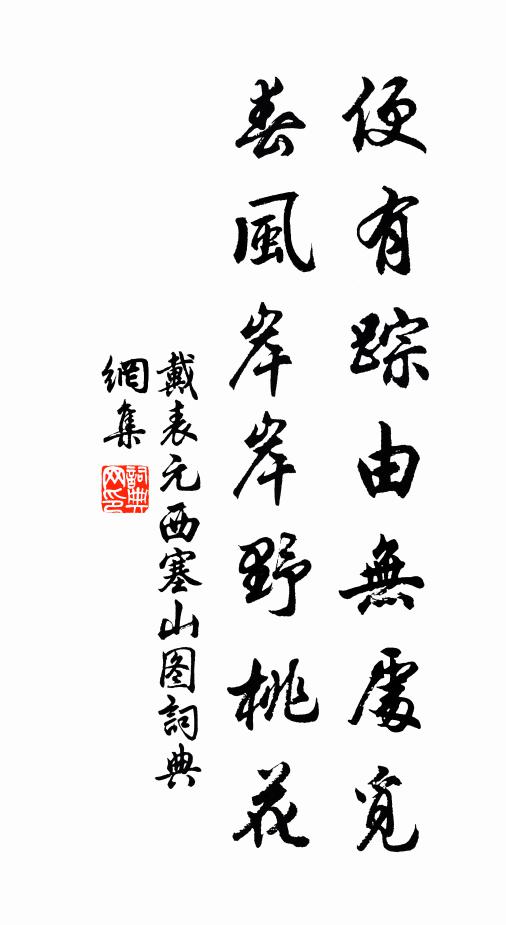 便有踪由無處覓
春風岸岸野桃花
戴表元西塞山图詞典
網集
詞典
网印